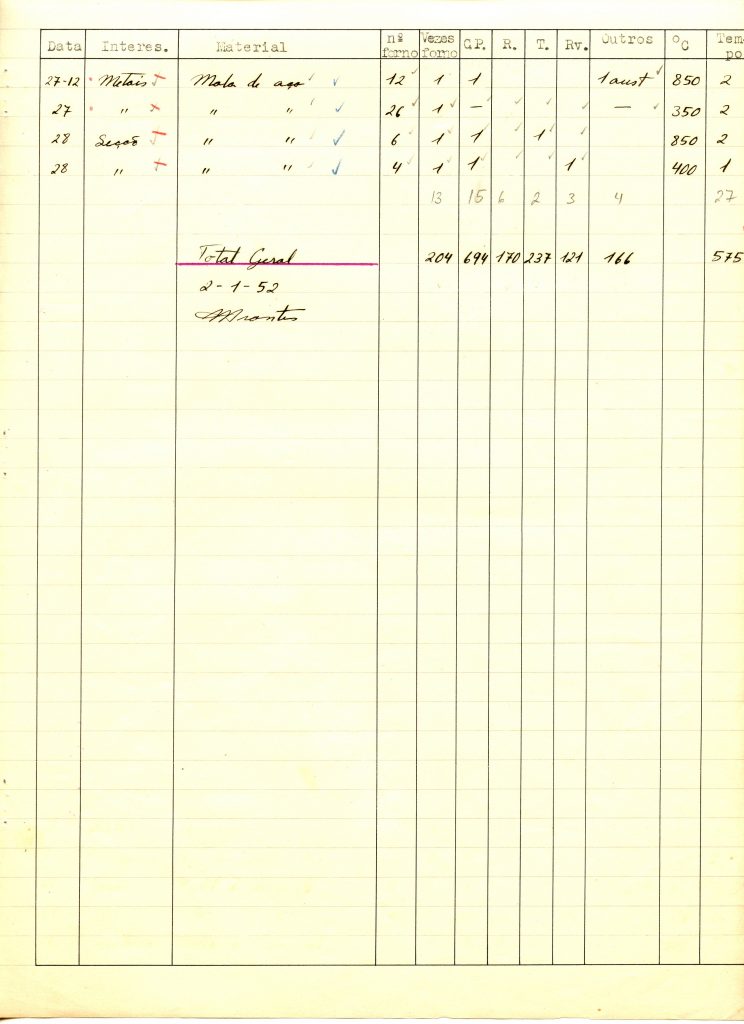 Data Interes. Material nº forno Vezes forno C.P. R. T. Rv. Outros ºC Tempo
27-12 Metais Mola de aço 12 1 1 1 aust 850 2
27 " " " 26 1 — — 350 2
28 Secção " " 6 1 1 1 850 2
28 " " " 4 1 1 1 400 1
13 15 6 2 3 4 27
Total Geral 204 694 170 237 121 166 575
2-1-52